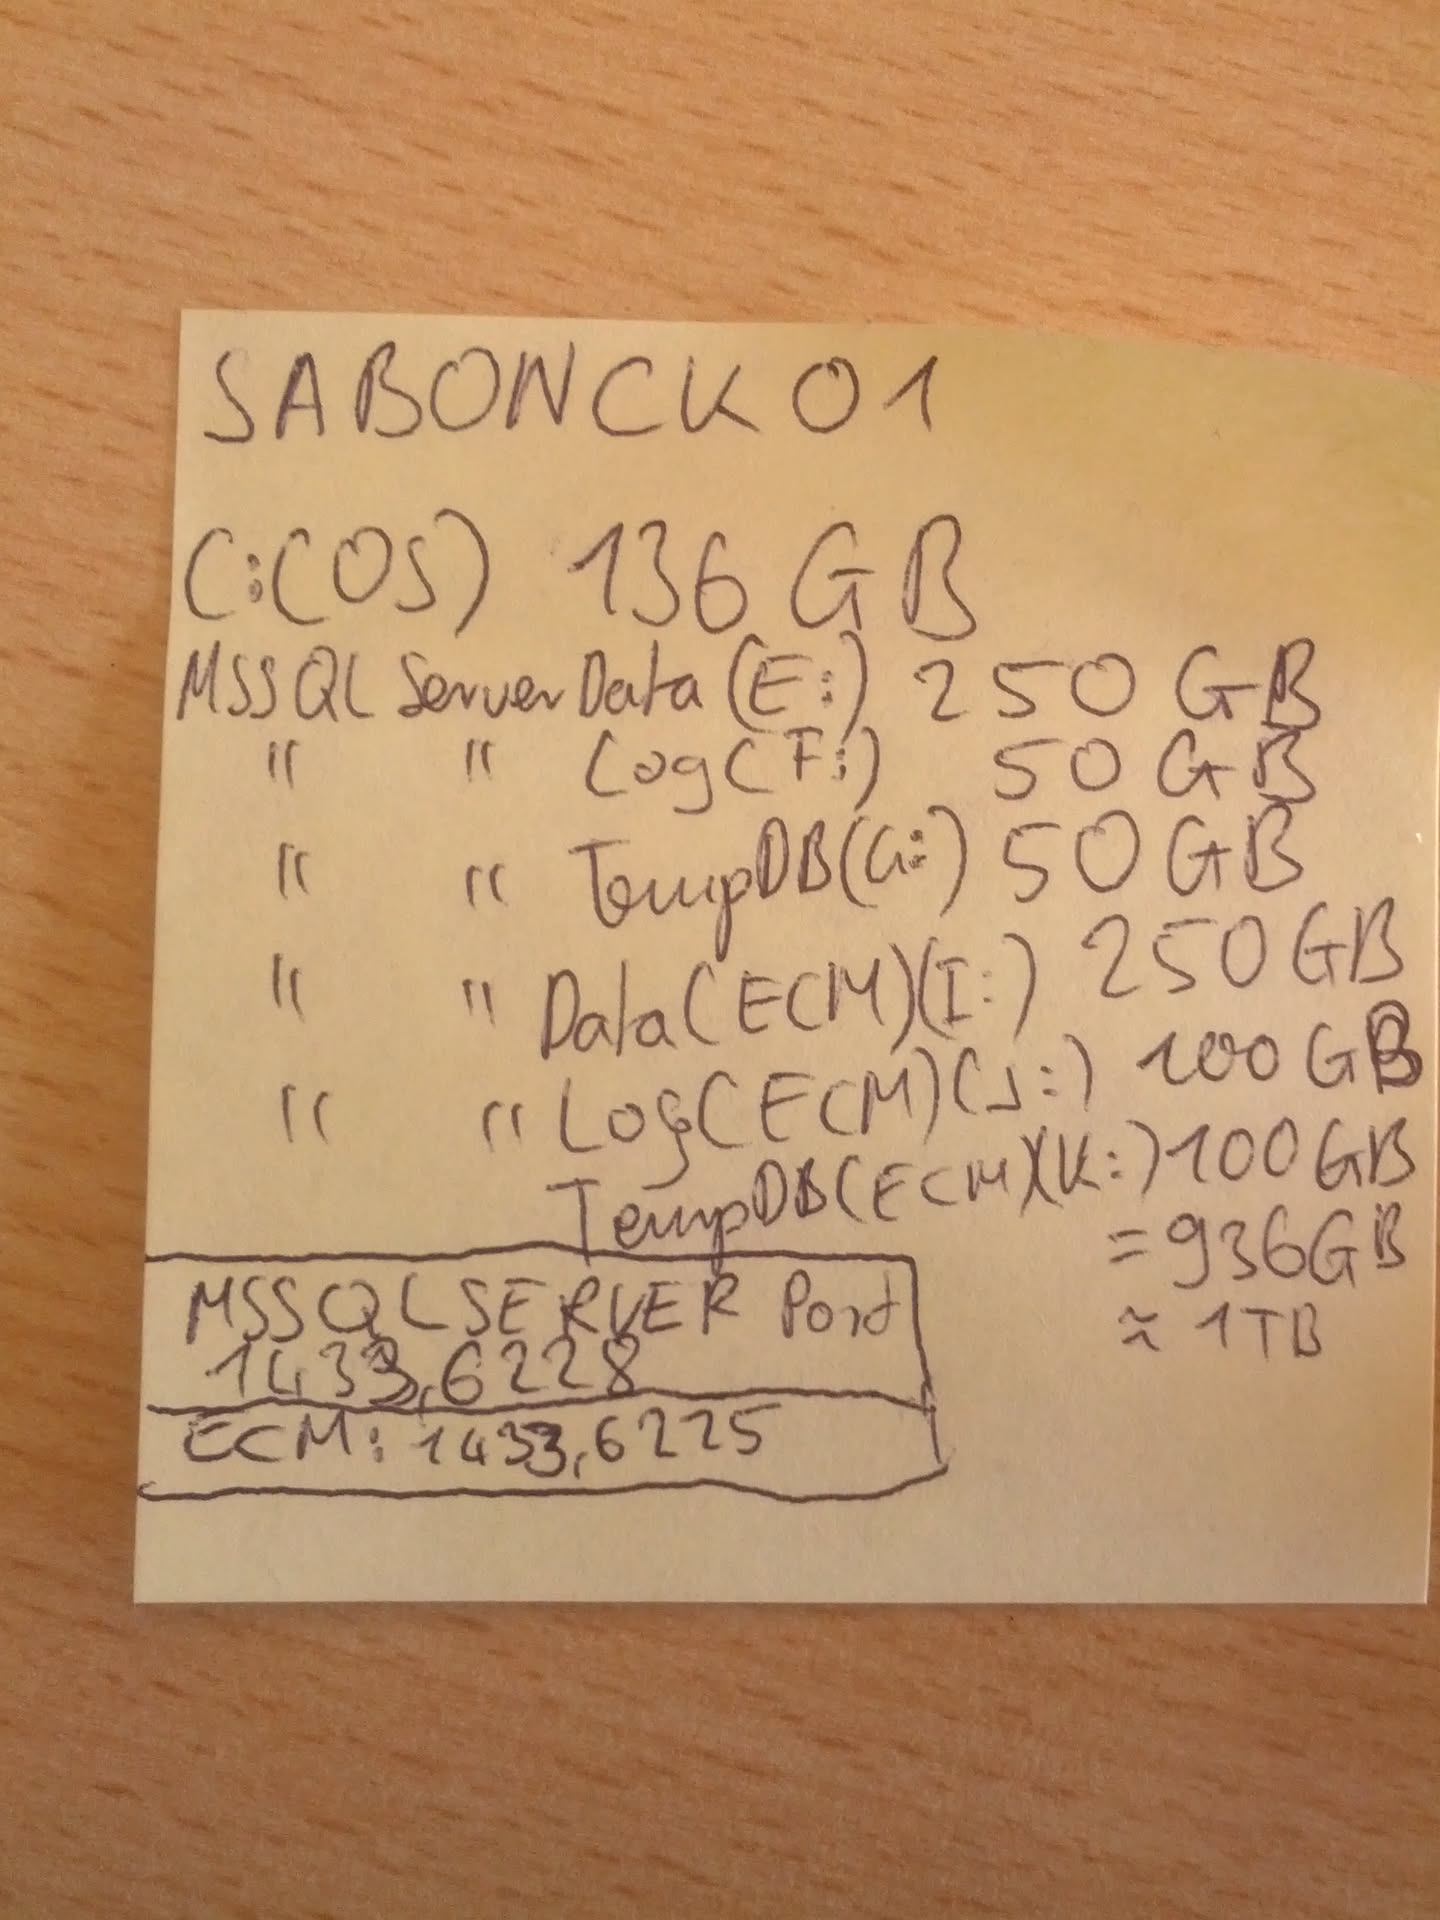 SABONCK01
C:(OS) 136 GB
MSSQL Server Data (E:) 250 GB
" " Log (F:) 50 GB
" " TempDB (G:) 50 GB
" " Data (ECM) (I:) 250 GB
" " Log (ECM) (J:) 100 GB
TempDB (ECM) (K:) 100 GB
= 936 GB
≈ 1TB
MSSQLSERVER Port
1433,6228
ECM: 1433,6225